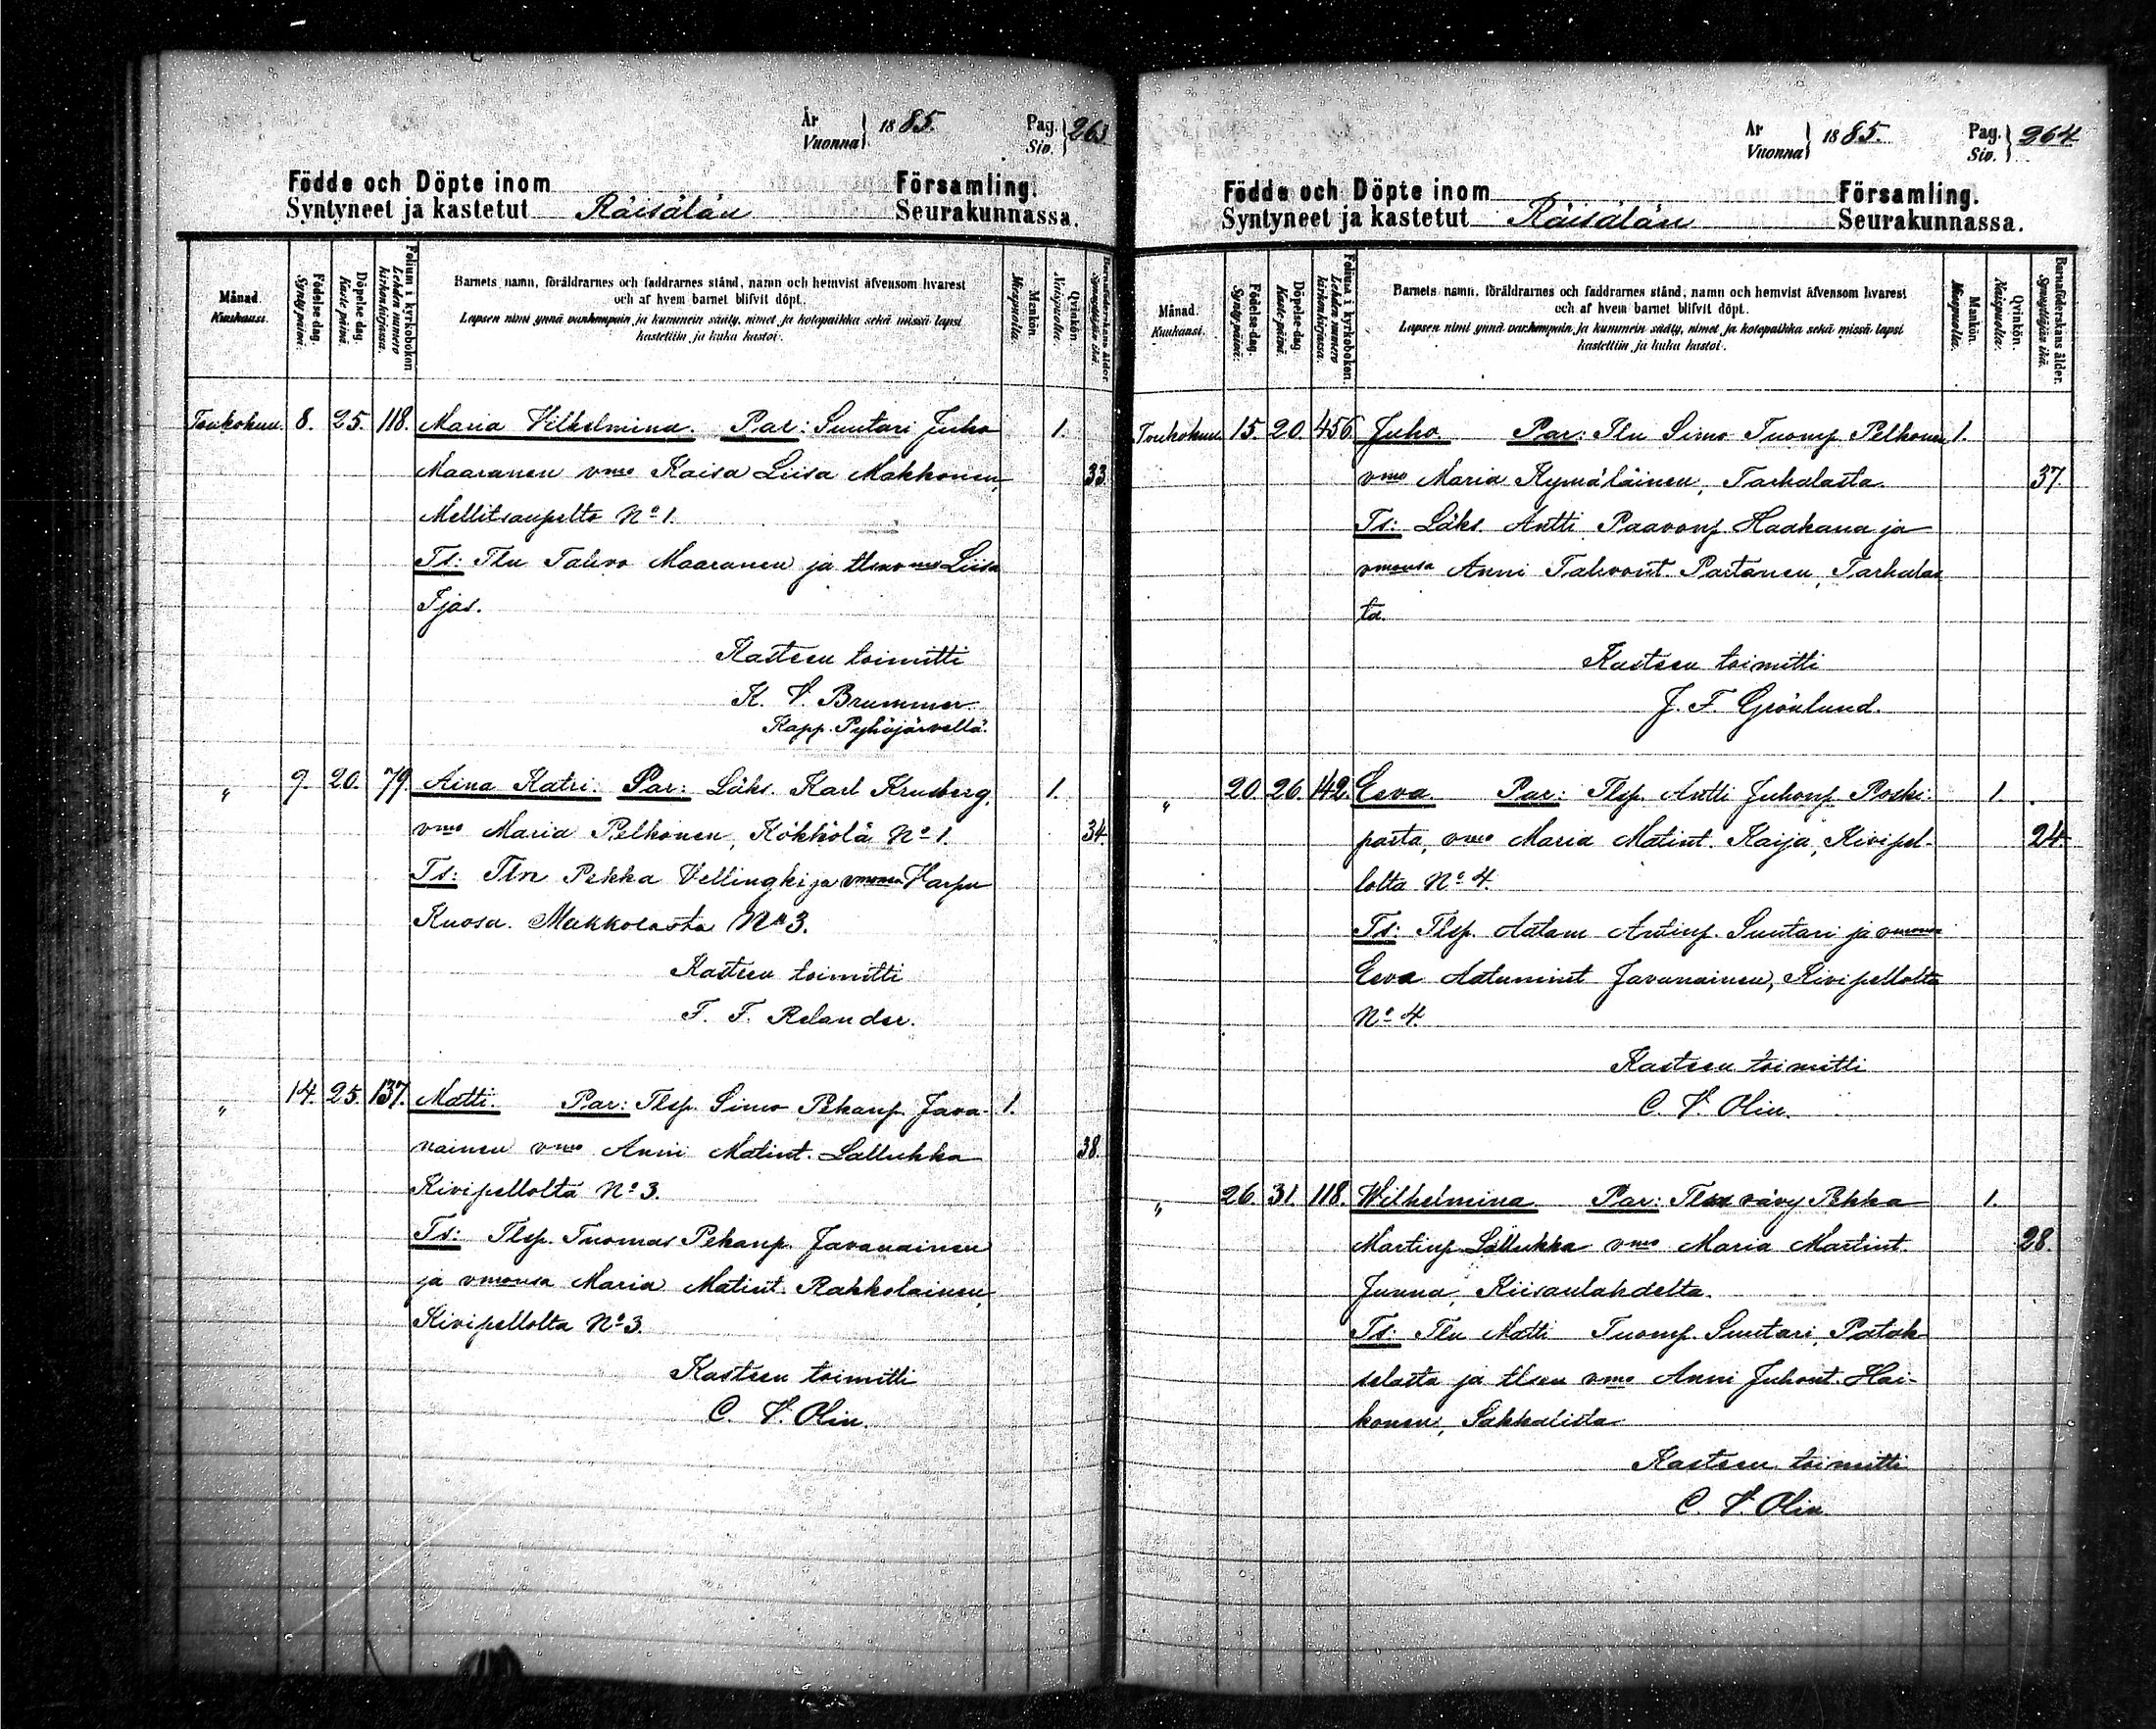 År
Vuonna } 1885.
Pag.
Siv. } 263
Födde och Döpte inom Församling.
Syntyneet ja kastetut Räisälän Seurakunnassa.
Månad. Kuukausi.
Födelse-dag. Syntypäivä.
Döpelse-dag. Kaste-päivä.
Folium i kyrkoboken Lehden numero kirkonkirjassa.
Barnets namn, föräldrarnes och faddrarnes stånd, namn och hemvist äfvensom hvarest
och af hvem barnet blifvit döpt.
Lapsen nimi ynnä vanhempain ja kummein sääty, nimet ja kotopaikka sekä missä lapsi
kastettiin ja kuka kastoi.
Mankön. Miespuolia.
Qvinkön. Naispuolia.
Barnaföderskans ålder. Synnyttäjän ikä.
Toukokuu. 8. 25. 118. Maria Vilhelmina. Par: Suutari Juho 1.
Maaranen vmo Kaisa Liisa Makkonen, 33
Mellitsanpelto No 1.
Ts: Tln Tahvo Maaranen ja tlsen vmo Liisa
Ijas.
Kasteen toimitti
K. V. Brummer.
Kapp. Pyhäjärvellä.
" 9. 20. 79. Aina Katri. Par: Läks. Karl Kruberg, 1.
vmo Maria Pelkonen, Kökkölä No 1. 34.
Ts: Tln Pekka Vellingki ja vmonsa Harpu
Kuosa. Mukkolasta No 3.
Kasteen toimitti
F. F. Relander.
" 14. 25. 137. Matti. Par: Tlsp. Simo Pekanp. Java- 1.
nainen vmo Anni Matint. Lallukka 38.
Kivipellolta No 3.
Ts: Tlsp. Tuomas Pekanp. Javanainen
ja vmonsa Maria Matint. Rakkolainen,
Kivipellolta No 3.
Kasteen toimitti
C. V. Olin.
År
Vuonna } 1885.
Pag.
Siv. } 264
Födde och Döpte inom Församling.
Syntyneet ja kastetut Räisälän Seurakunnassa.
Månad. Kuukausi.
Födelse-dag. Synty-päivä.
Döpelse-dag. Kaste-päivä.
Folium i kyrkoboken. Lehden numero kirkonkirjassa.
Barnets namn, föräldrarnes och faddrarnes stånd, namn och hemvist äfvensom hvarest
och af hvem barnet blifvit döpt.
Lapsen nimi ynnä vanhempain ja kummein sääty, nimet ja kotopaikka sekä missä lapsi
kastettiin ja kuka kastoi.
Mankön. Miespuolia.
Qvinkön. Naispuolia.
Barnaföderskans ålder. Synnyttäjän ikä.
Toukokuu 15. 20. 456. Juho. Par: Tln Simo Tuomp. Pelkonen 1.
vmo Maria Kymäläinen, Tarkalasta. 37.
Ts: Läks. Antti Paavonp. Haakana ja
vmonsa Anni Tahvont. Partanen, Tarkalas
ta.
Kasteen toimitti
J. F. Grönlund.
" 20. 26. 142. Eeva. Par: Tlsp. Antti Juhonp. Poski- 1.
parta, vmo Maria Matint. Kaija, Kivipel- 24.
lolta No 4.
Ts: Tlsp. Aatam Antinp. Suutari ja vmonsa
Eeva Aatamint Javanainen, Kivipellolta
No 4.
Kasteen toimitti
C. V. Olin.
" 26. 31. 118. Wilhelmina Par: Tln vävy Pekka 1.
Martinp. Lallukka vmo Maria Martint. 28.
Junna, Kiisanlahdelta.
Ts: Tln Matti Tuomp. Suutari, Patak-
selasta ja tlsen vmo Anni Juhont. Hai-
konen, Sakkalista.
Kasteen toimitti
C. V. Olin.